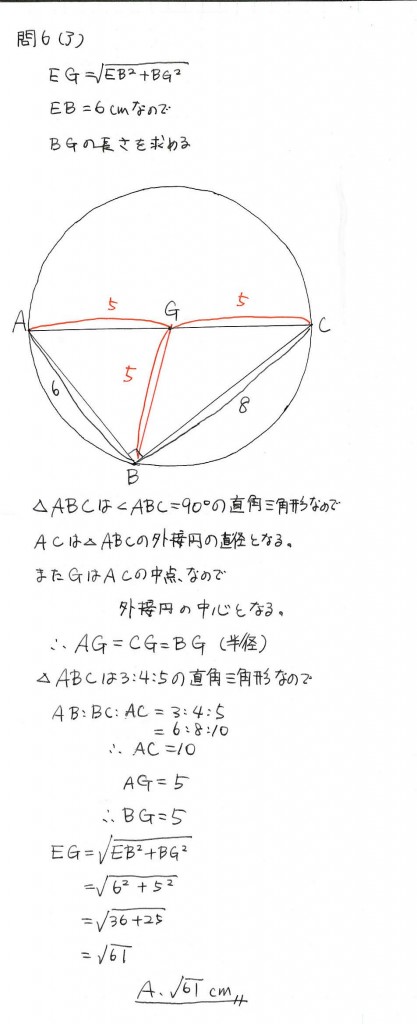 問6(ア)
EG=√EB²+BG²
EB=6cmなので
BGの長さを求める
5
5
A
G
C
5
6
8
B
△ABCは∠ABC=90°の直角三角形なので
ACは△ABCの外接円の直径となる。
またGはACの中点、なので
外接円の中心となる。
∴AG=CG=BG(半径)
△ABCは3:4:5の直角三角形なので
AB:BC:AC=3:4:5
=6:8:10
∴AC=10
AG=5
∴BG=5
EG=√EB²+BG²
=√6²+5²
=√36+25
=√61
A.√61cm